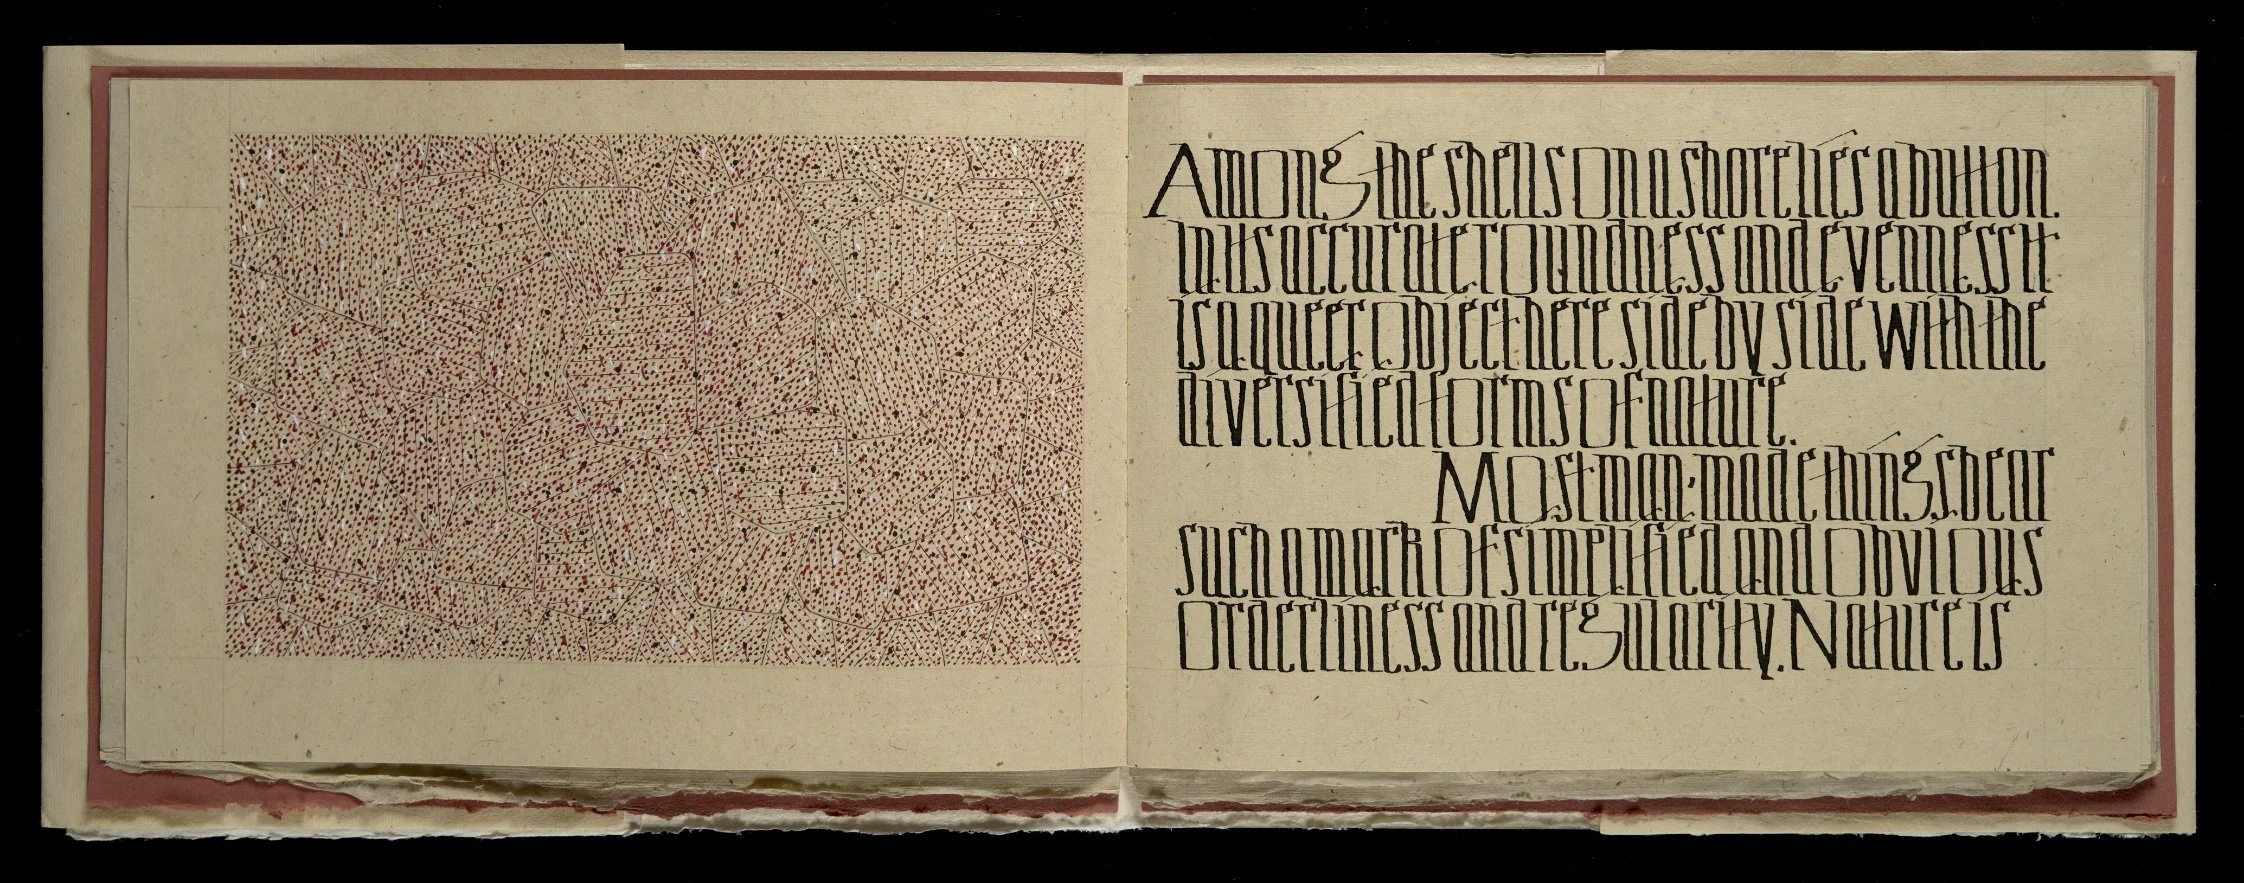 Among the shells on a shore lies a button.
In its accurate roundness and evenness it
is a queer object here side by side with the
diversified forms of nature.
Most man-made things bear
such a mark of simplified and obvious
orderliness and regularity. Nature is